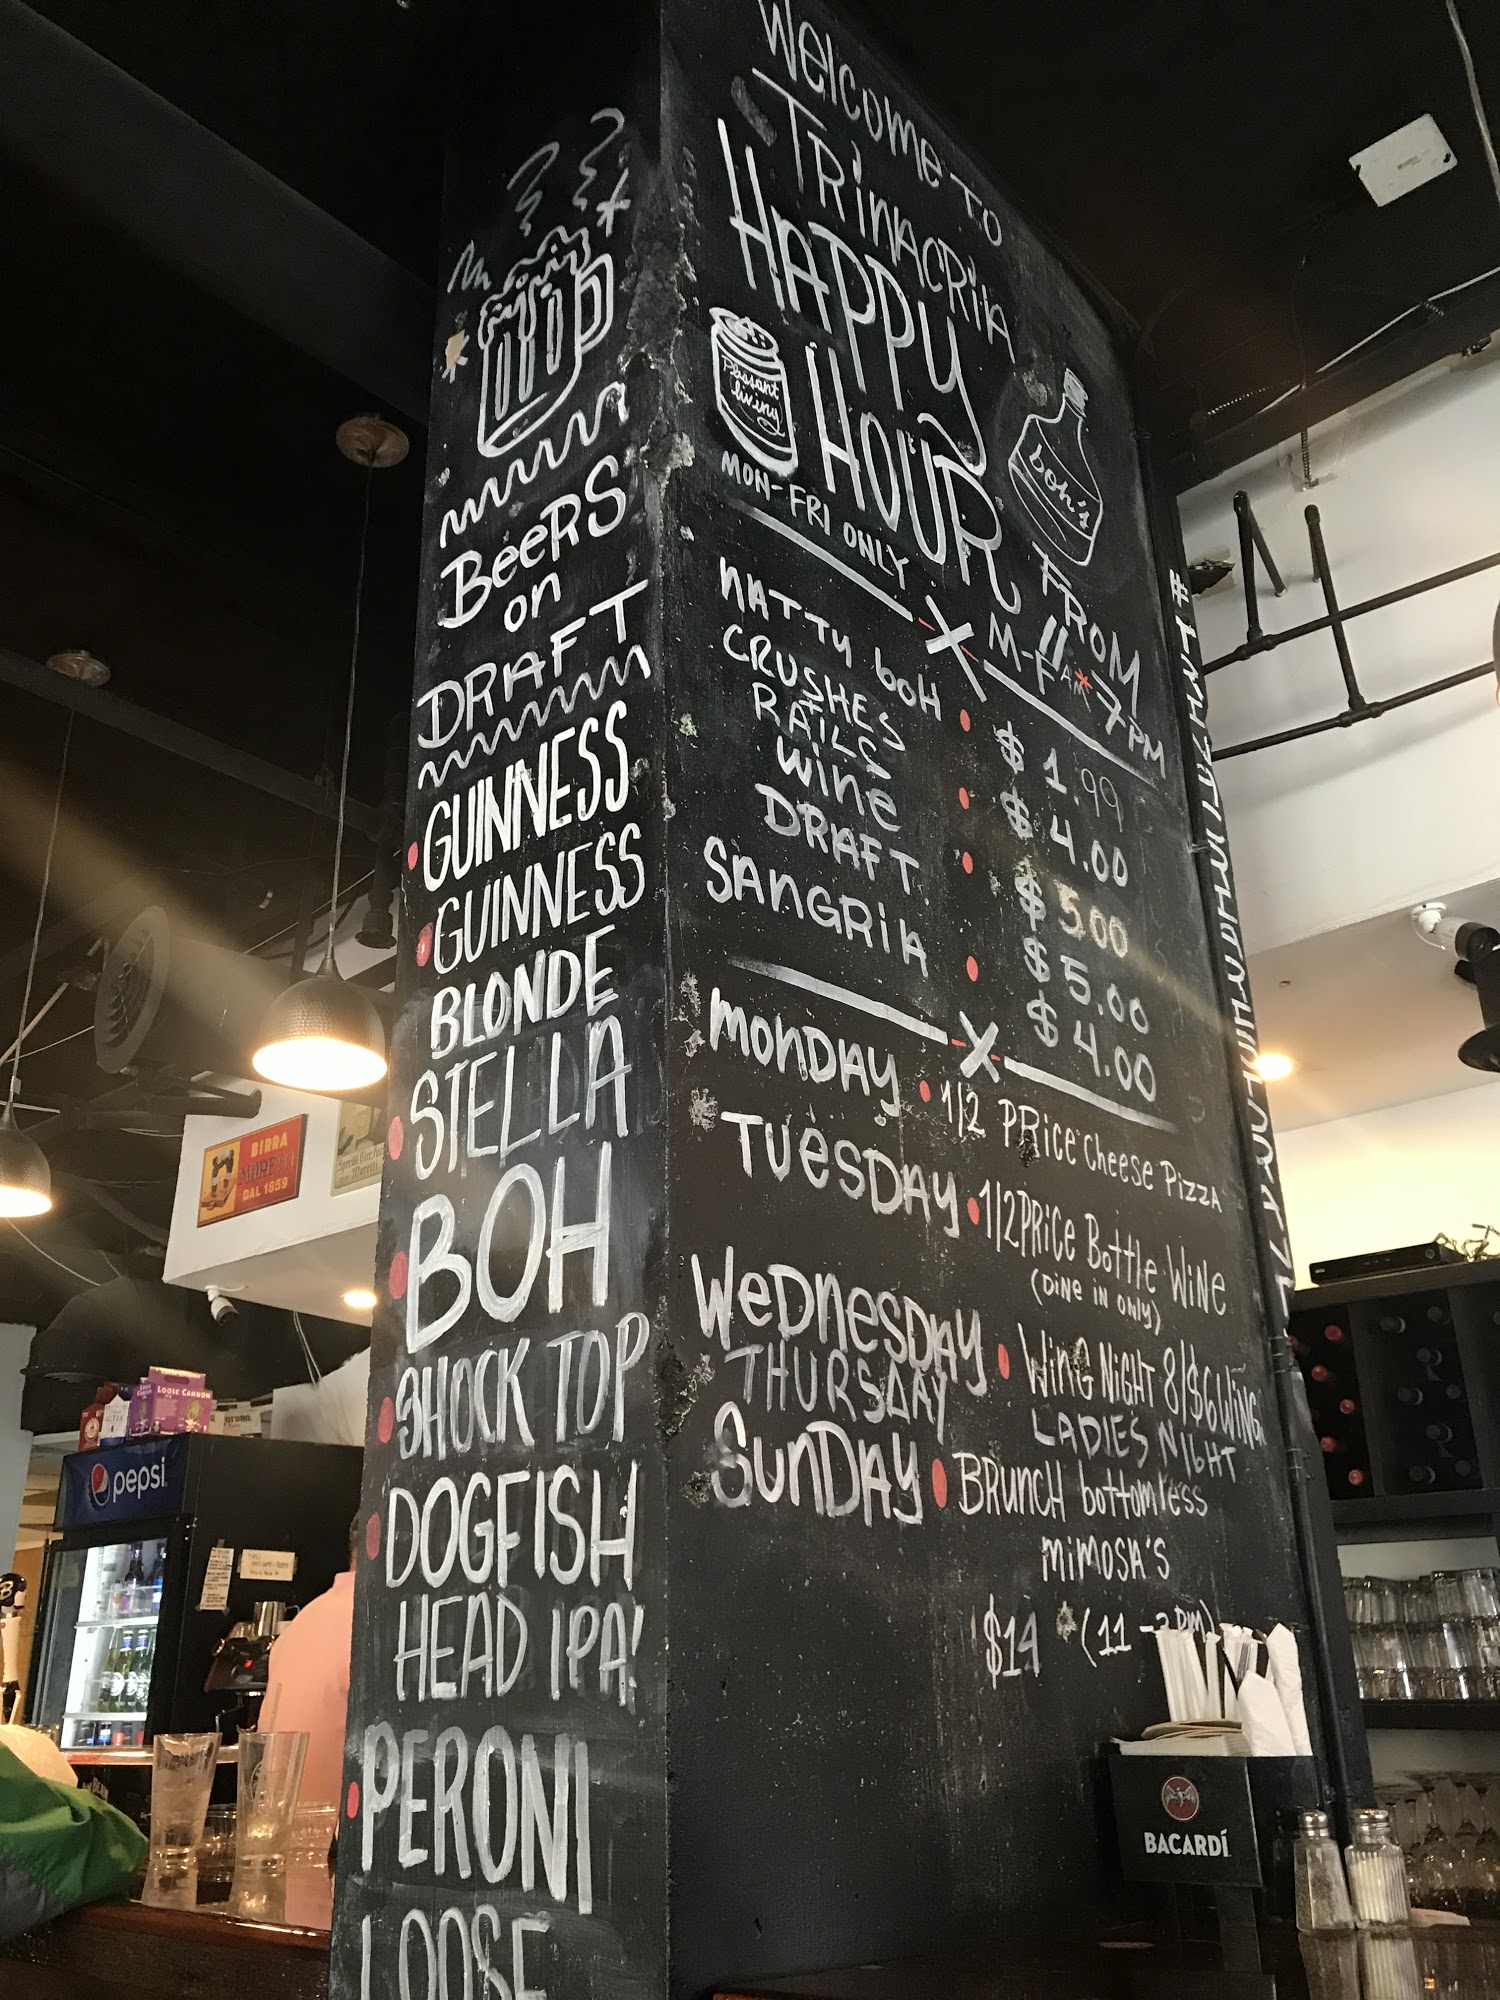 Beers
on
DRAFT
GUINNESS
GUINNESS
BLONDE
STELLA
BOH
SHOCK TOP
DOGFISH
HEAD IPA!
PERONI
LOOSE
Welcome to
TRINACRIA
HAPPY
HOUR
Pleasant
living
boh's
MON-FRI ONLY
FROM
M-F 11AM*7PM
NATTY BOH $1.99
CRUSHES $4.00
RAILS
WINE $5.00
DRAFT $5.00
SANGRIA $4.00
MONDAY 1/2 PRICE CHEESE PIZZA
TUESDAY 1/2 PRICE BOTTLE WINE
(DINE IN ONLY)
WEDNESDAY WING NIGHT 8/$6 WING
THURSDAY LADIES NIGHT
SUNDAY BRUNCH bottomless
MIMOSA'S
$14 * (11
BIRRA
MORETTI
DAL 1859
LOOSE CANNON
pepsi
BACARDÍ